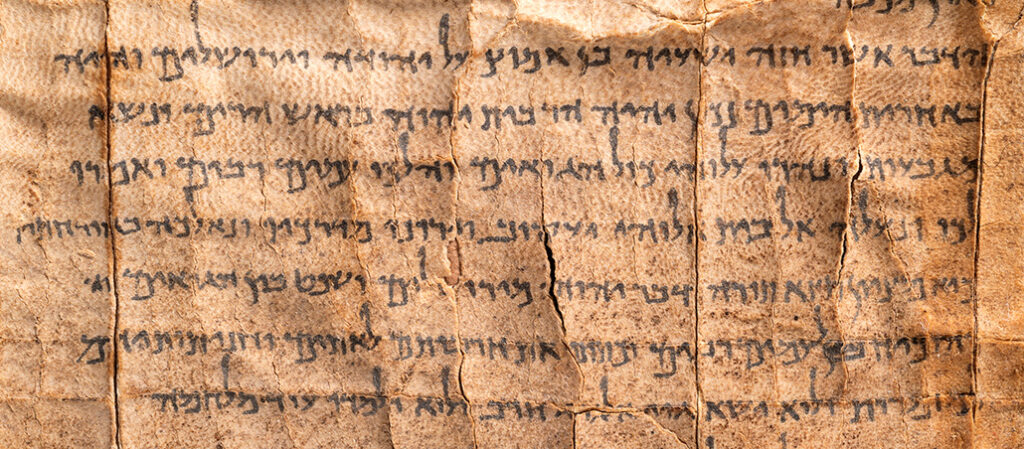 הדבר אשר חזה ישעיה בן אמוץ על יהודה וירושלים והיה
באחרית הימים נכון יהיה הר בית יהוה בראש הרים ונשא
מגבעות ונהרו עלוהי כול הגואים והלכו עמים רבים ואמרו
לכו ונעלה אל בית אלוהי יעקוב וירונו מדרכיו ונלכה באורחותיו
כיא מציון תצא תורה ודבר יהוה מירושלים ושפט בין הגואים
והוכיח לעמים רבים וכתתו את חרבותם לאתים וחניתותיהם
למזמרות ולוא ישא גוי אל גוי חרב ולוא ילמדו עוד מלחמה